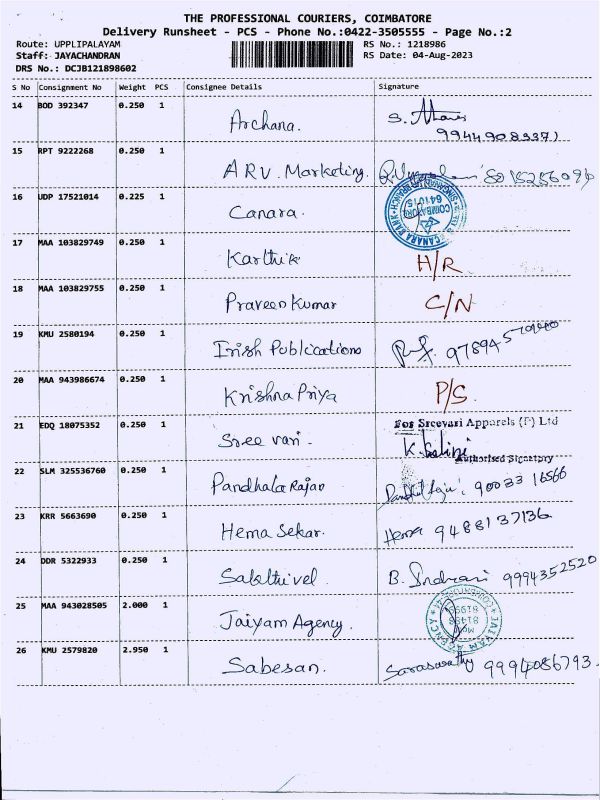 THE PROFESSIONAL COURIERS, COIMBATORE
Delivery Runsheet - PCS - Phone No.:0422-3505555 - Page No.:2
Route: UPPLIPALAYAM RS No.: 1218986
Staff: JAYACHANDRAN RS Date: 04-Aug-2023
DRS No.: DCJB121898602
S No Consignment No Weight PCS Consignee Details Signature
14 BOD 392347 0.250 1 Archana. S.
9944908337)
15 RPT 9222268 0.250 1 ARV. Marketing.
16 UDP 17521014 0.225 1 Canara. CANARA BANK COIMBATORE 641015
17 MAA 103829749 0.250 1 Karthik H/R
18 MAA 103829755 0.250 1 Praveen Kumar C/N
19 KMU 2580194 0.250 1 Irish Publications
20 MAA 943986674 0.250 1 Krishna Priya P/S.
21 EDQ 18075352 0.250 1 Sree vari. For Sreevari Apparels (P) Ltd
Authorised Signatory
22 SLM 325536760 0.250 1 Pandhala Rajan 90033 16566
23 KRR 5663690 0.250 1 Hema Sekar. Hema 9488137136
24 DDR 5322933 0.250 1 Sakthivel B. Indrani 9994352520
25 MAA 943028505 2.000 1 Jaiyam Agency. JAIYAM AGENCY
26 KMU 2579820 2.950 1 Sabesan. Saraswathy 9994086793.